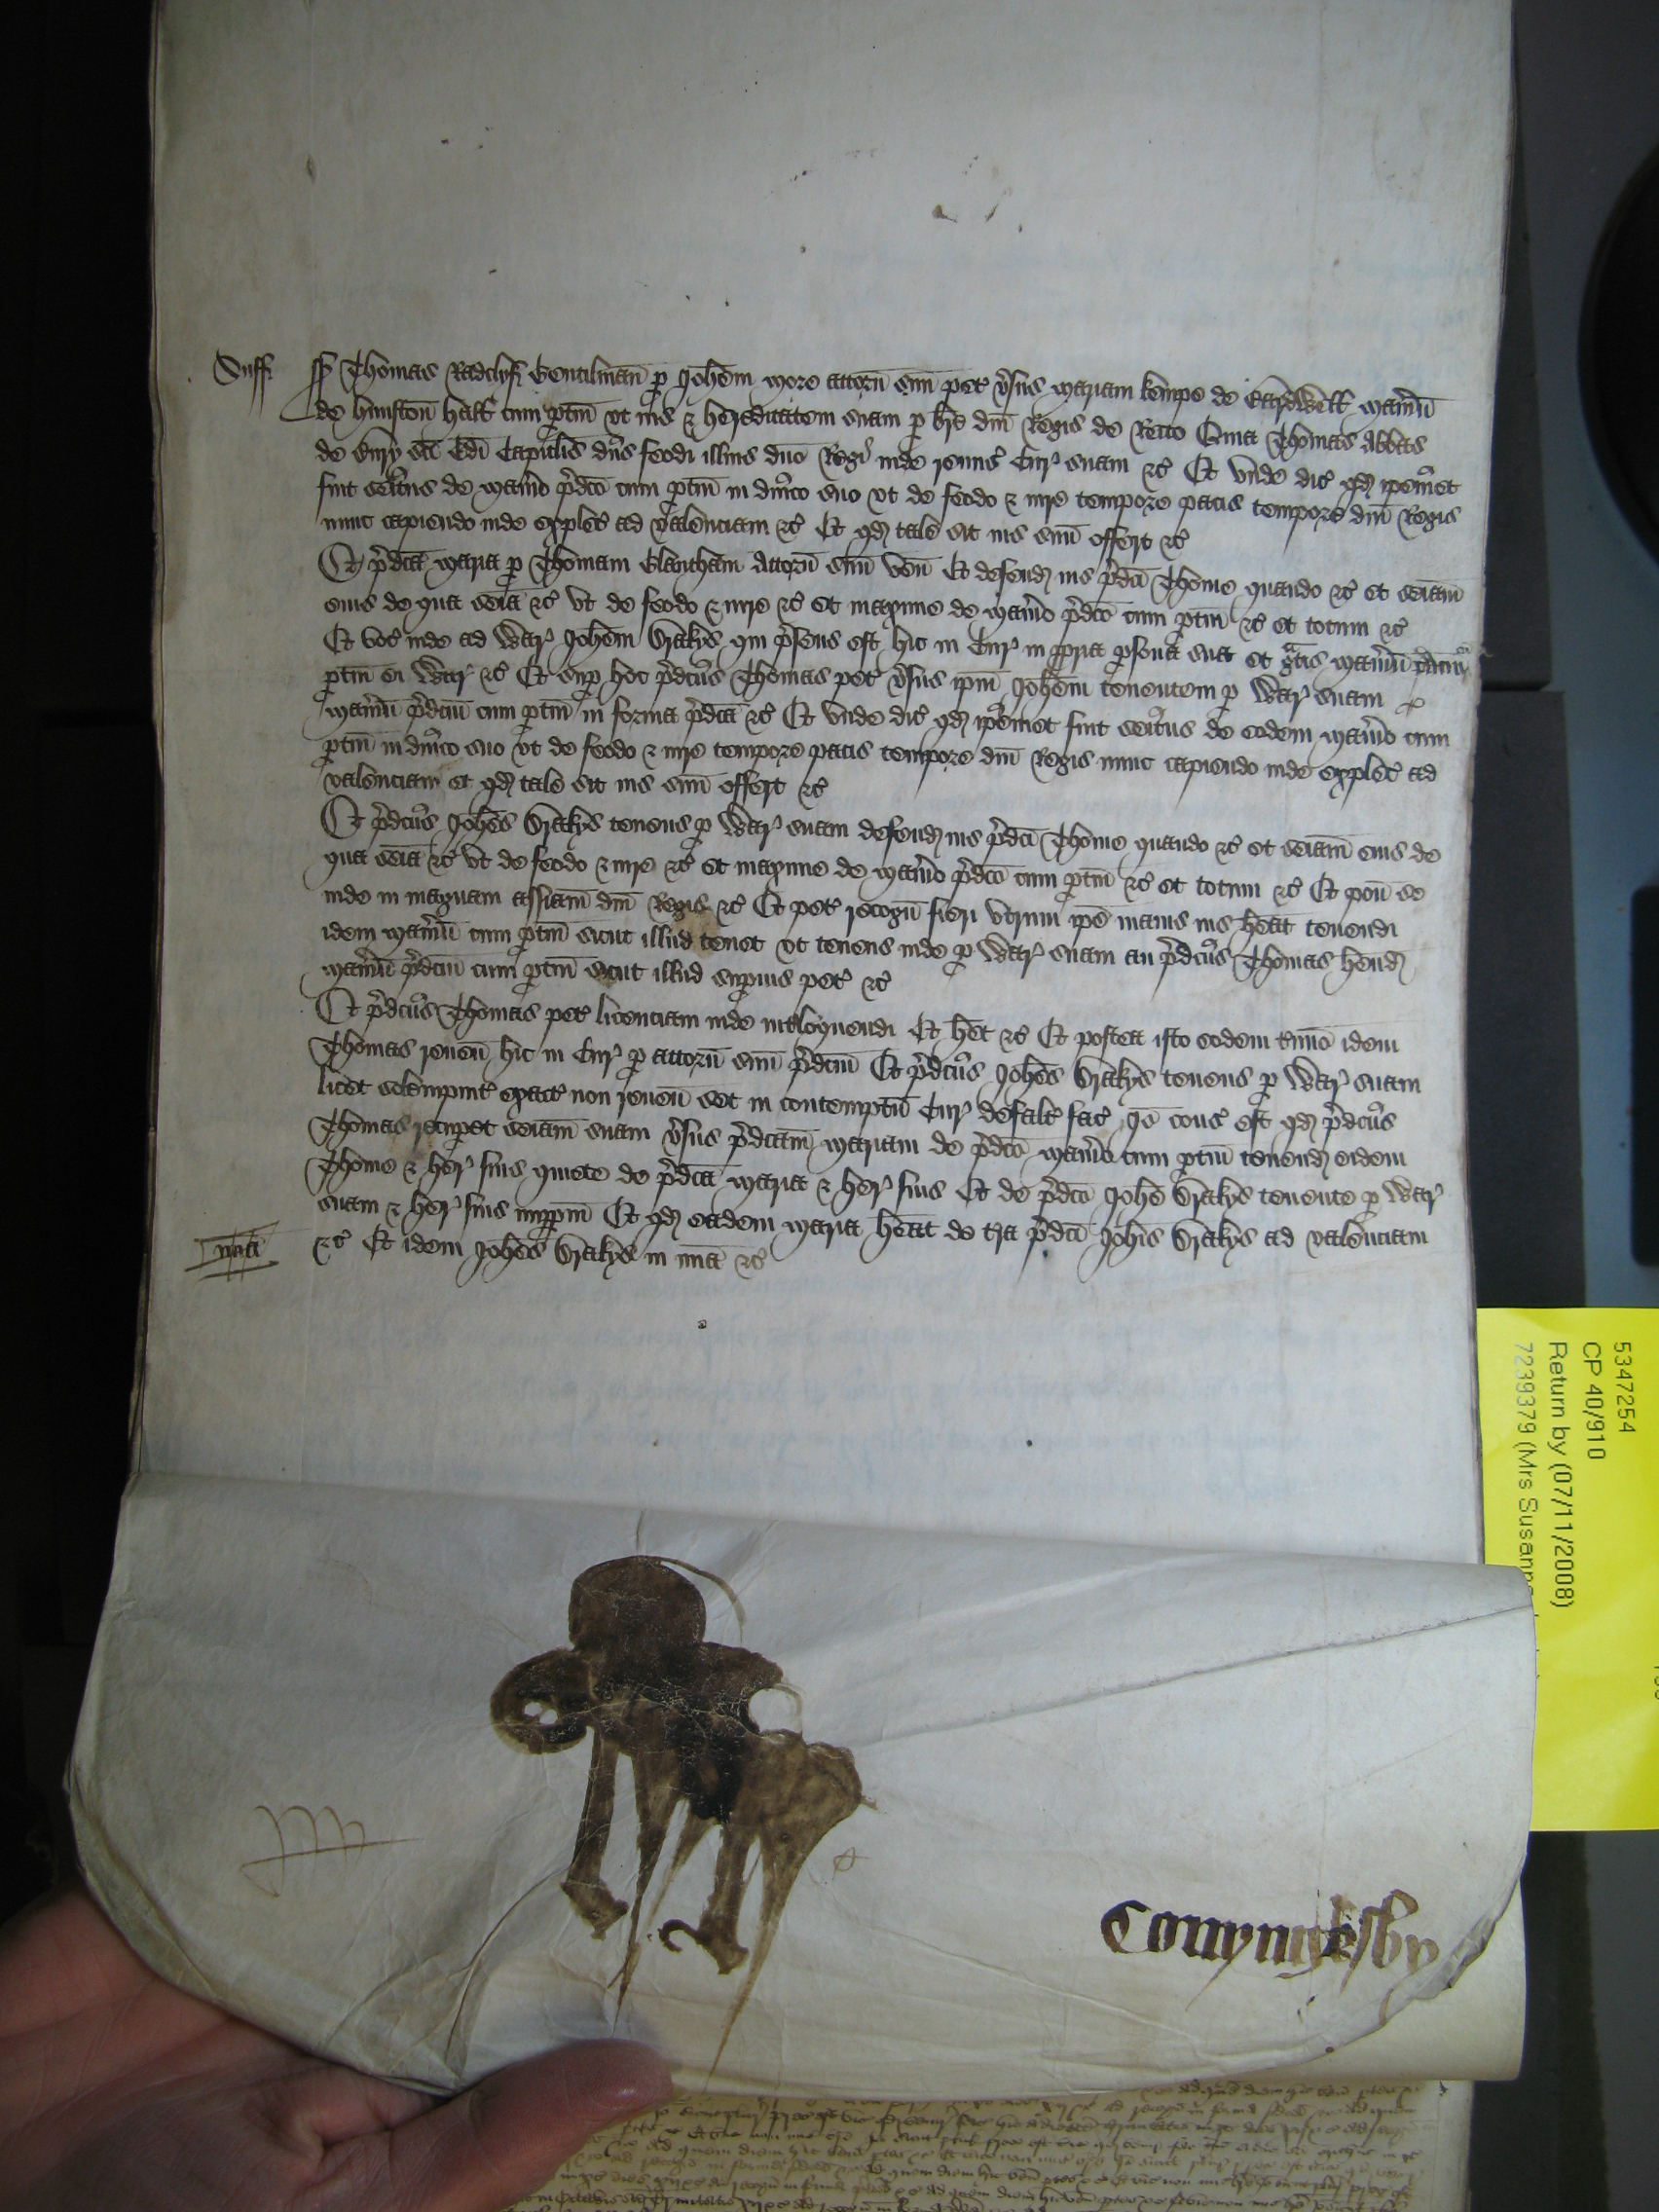 Suff
ss Thomas Radclyff Gentilman p Johem More attorn suu pet vsus Mariam Kempe de Cardwell Maniu
de Hunston Hall cum ptin vt ius & hereditatem suam p bre dni Regis de Recto Quia Thomas Abbas
de Bury sci Edi Capitlis dns feodi illius duc Regi inde remis Cur suam &c Et vnde dic qd ipemet
fuit seitus de Manio pdco cum ptin in dnico suo vt de feodo & iure tempore pacis tempore dni Regis
nunc capiendo inde explec ad valenciam &c Et qd tale sit ius suu offert &c
Et pdca Maria p Thomam Elantham Attorn suu ven Et defend ius pdci Thome quando &c et seiam
eius de qua seia &c Vt de feodo & iure &c et maxime de Manio pdco cum ptin &c et totum &c
Et voc inde ad War Johem Brakys qui psens est hic in Cur in ppria psona sua et gratis Maniu pdcm cu
ptin ei War &c Et sup hoc pdcus Thomas pet vsus ipm Johem tenentem p War suam
Maniu pdcm cum ptin in forma pdca &c Et vnde dic qd ipemet fuit seitus de eodem Manio cum
ptin in dnico suo vt de feodo & iure tempore pacis tempore dni Regis nunc capiendo inde explec ad
valenciam et qd tale sit ius suu offert &c
Et pdcus Johes Brakys tenens p War suam defend ius pdci Thome quando &c et seiam eius de
qua seia &c vt de feodo & iure &c et maxime de Manio pdco cum ptin &c et totum &c Et pon se
inde in magnam assiam dni Regis &c Et pet recogn fieri vtrum ipe maius ius heat tenendi
idem Maniu cum ptin sicut illud tenet vt tenens inde p War suam an pdcus Thomas hend
Maniu pdcm cum ptin sicut illud supius pet &c
Et pdcus Thomas pet licenciam inde intloquendi Et het &c Et postea isto eodem tmio idem
Thomas reven hic in Cur p attorn suu pdcm Et pdcus Johes Brakys tenens p War suam
licet solempnit exact non reven set in contemptu Cur defalt fac Io cons est qd pdcus
Thomas recupet seiam suam vsus pdcam Mariam de pdco Manio cum ptin tenend eidem
Thome & her suis quiete de pdca Maria & her suis Et de pdco Johe Brakys tenente p War
suam & her suis imppm Et qd eadem Maria heat de tra pdci Johis Brakys ad valenciam
mia
&c Et idem Johes Brakys in mia &c
Conyngesby
5347254
CP 40/910
Return by (07/11/2008)
7239379 (Mrs Susanne